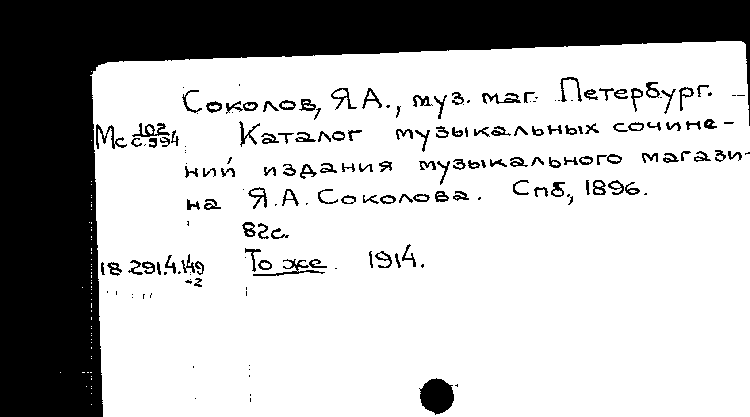 Соколов, Я.А., муз. маг. Петербург.
Мс 102/с.994 Каталог музыкальных сочине-
ний издания музыкального магази-
на Я.А. Соколова. Спб, 1896.
82с.
18.291.4.149 То же. 1914.
-2